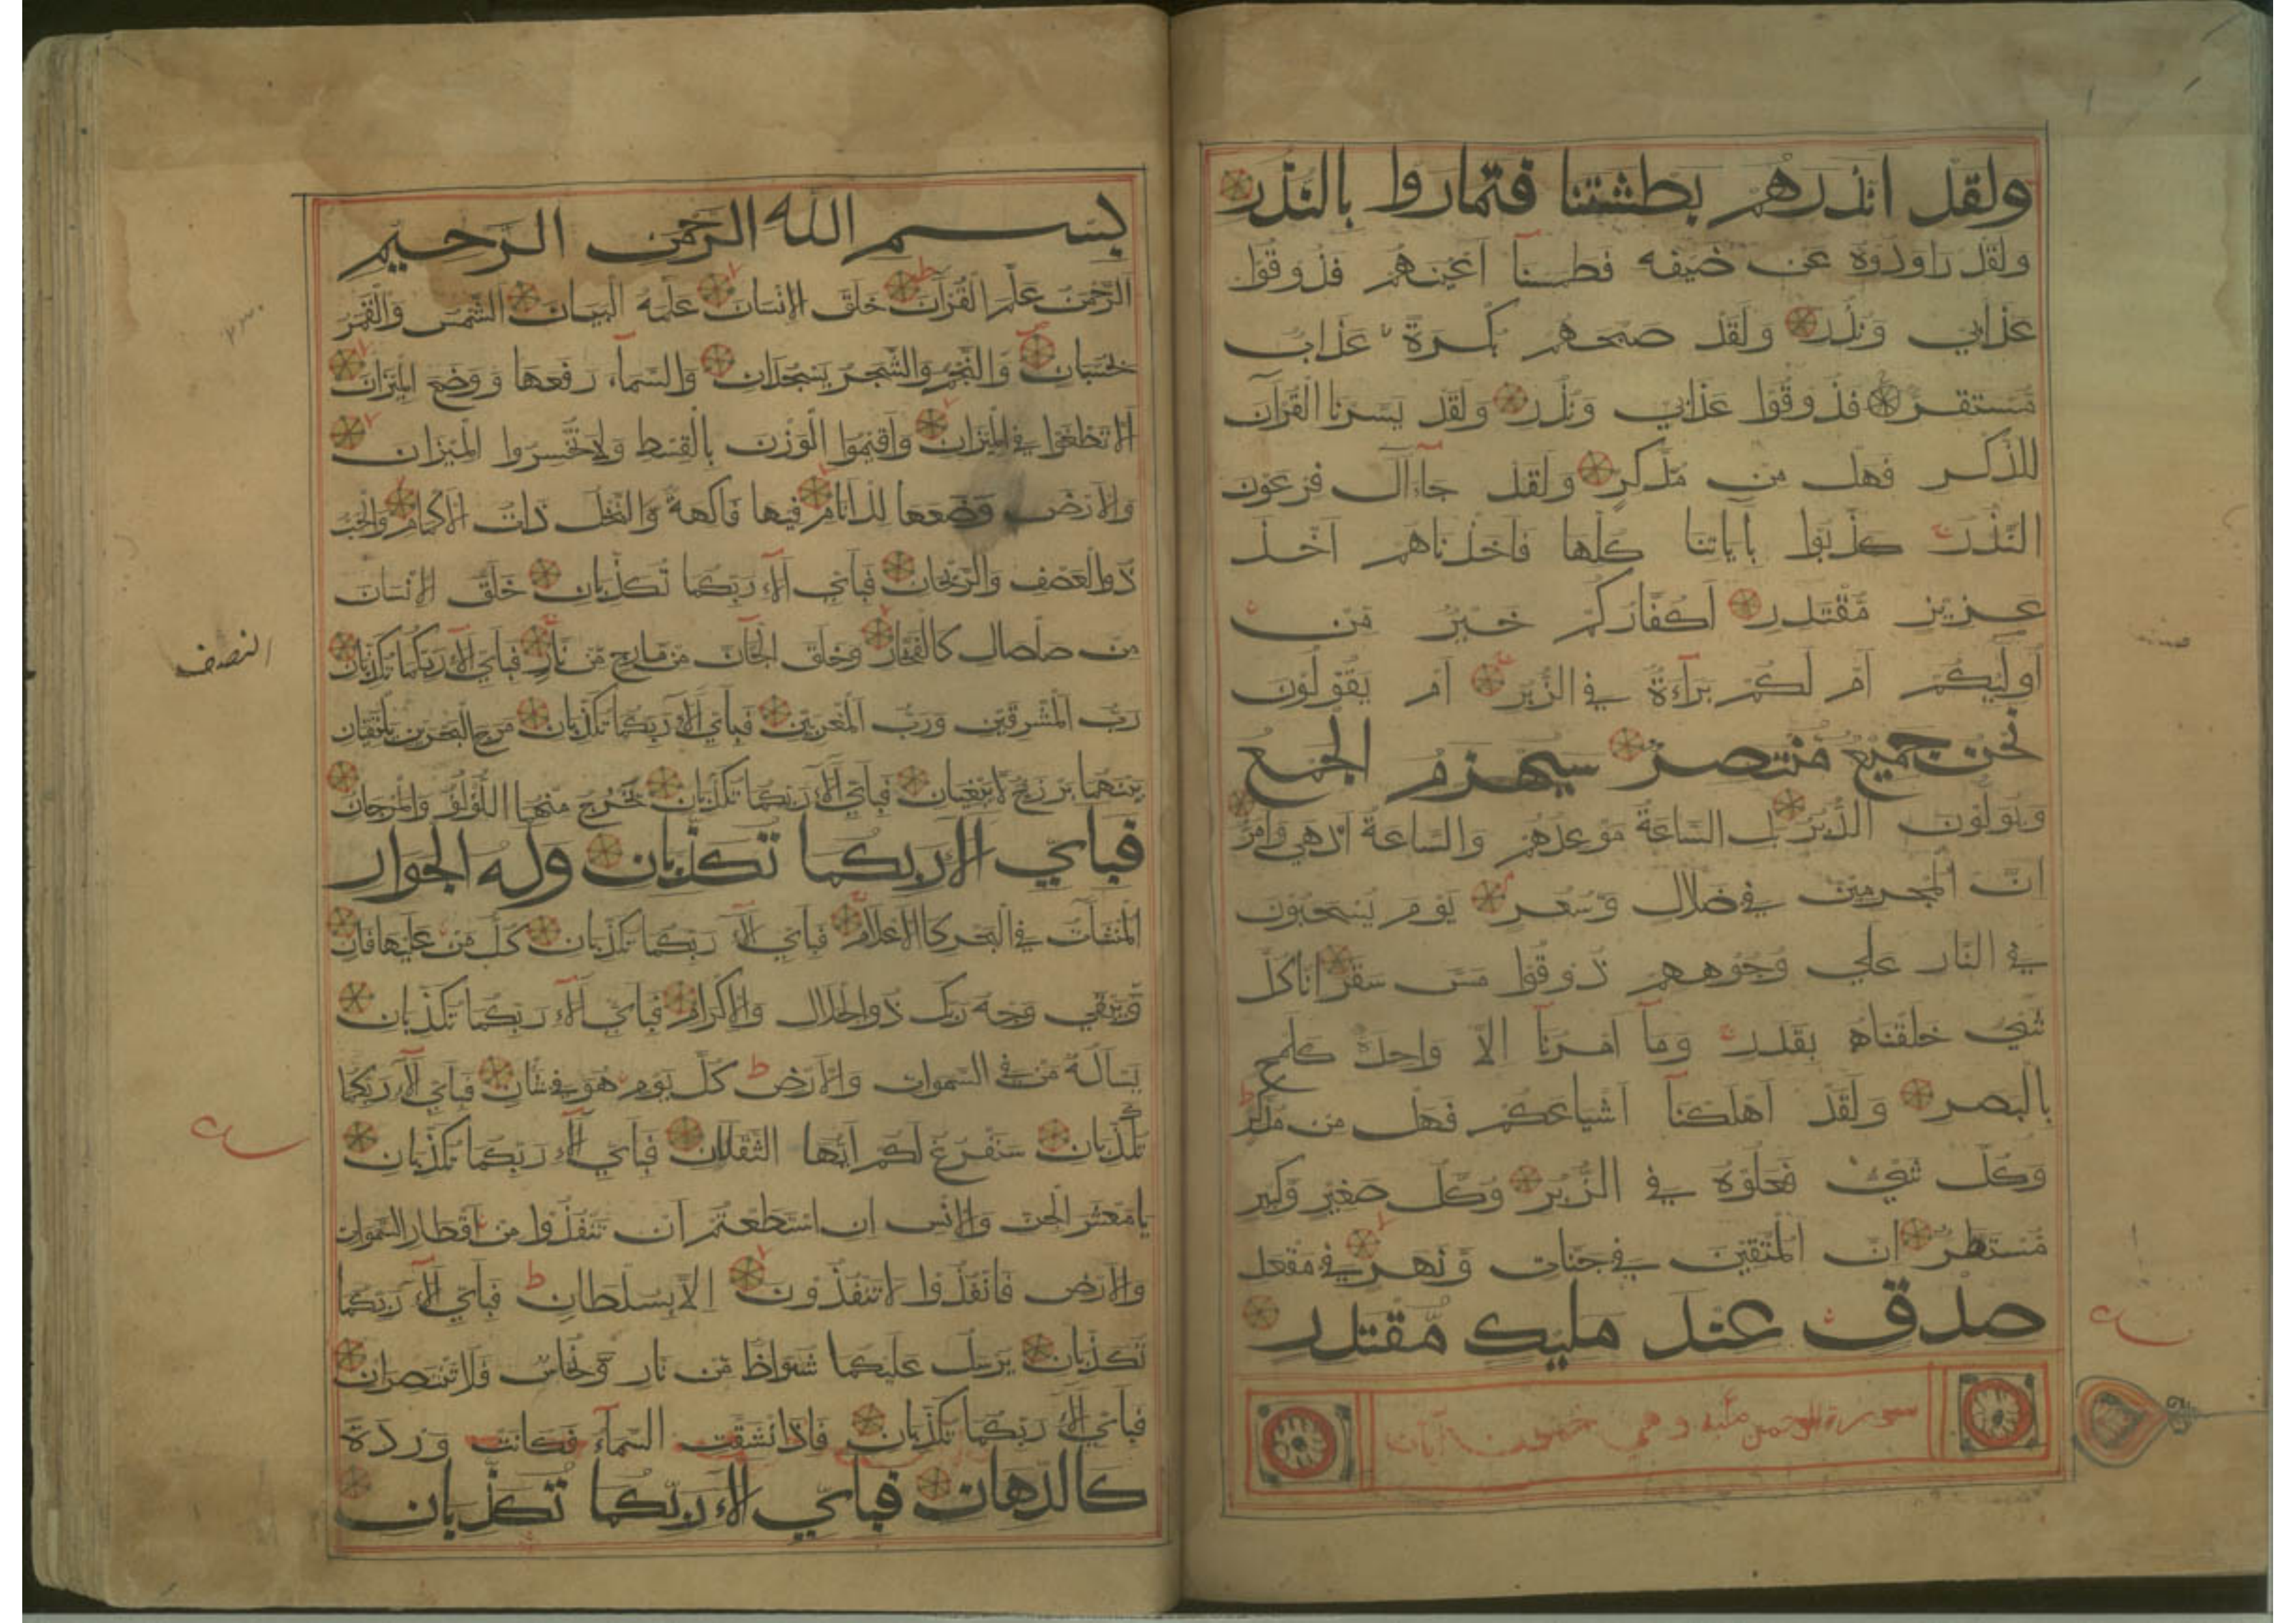 ولقد انذرهم بطشتنا فتماروا بالنذر
ولقد راودوه عن ضيفه فطمسنا اعينهم فذوقوا
عذابي ونذر ولقد صبحهم بكرة عذاب
مستقر فذوقوا عذابي ونذر ولقد يسرنا القرآن
للذكر فهل من مدكر ولقد جآء آل فرعون
النذر كذبوا بآياتنا كلها فاخذناهم اخذ
عزيز مقتدر اكفاركم خير من
اولئكم ام لكم برآءة في الزبر ام يقولون
نحن جميع منتصر سيهزم الجمع
ويولون الدبر بل الساعة موعدهم والساعة ادهى وامر
ان المجرمين في ضلال وسعر يوم يسحبون
في النار علي وجوههم ذوقوا مس سقر انا كل
شيء خلقناه بقدر ومآ امرنآ الا واحدة كلمح
بالبصر ولقد اهلكنآ اشياعكم فهل من مدكر
وكل شيء فعلوه في الزبر وكل صغير وكبير
مستطر ان المتقين في جنات ونهر في مقعد
صدق عند مليك مقتدر
سورة الرحمن مكية وهي آيات
بسم الله الرحمن الرحيم
الرحمن علم القرآن خلق الانسان علمه البيان الشمس والقمر
بحسبان والنجم والشجر يسجدان والسمآء رفعها ووضع الميزان
الا تطغوا في الميزان واقيموا الوزن بالقسط ولا تخسروا الميزان
والارض وضعها للانام فيها فاكهة والنخل ذات الاكمام والحب
ذو العصف والريحان فبأي آلآء ربكما تكذبان خلق الانسان
من صلصال كالفخار وخلق الجآن من مارج من نار فبأي آلآء ربكما تكذبان
رب المشرقين ورب المغربين فبأي آلآء ربكما تكذبان مرج البحرين يلتقيان
بينهما برزخ لا يبغيان فبأي آلآء ربكما تكذبان يخرج منهما اللؤلؤ والمرجان
فبأي الآء ربكما تكذبان وله الجوار
المنشآت في البحر كالاعلام فبأي آلآء ربكما تكذبان كل من عليها فان
ويبقي وجه ربك ذو الجلال والاكرام فبأي آلآء ربكما تكذبان
يسأله من في السموات والارض كل يوم هو في شأن فبأي آلآء ربكما
تكذبان سنفرغ لكم ايها الثقلان فبأي آلآء ربكما تكذبان
يا معشر الجن والانس ان استطعتم ان تنفذوا من اقطار السموات
والارض فانفذوا لا تنفذون الا بسلطان فبأي آلآء ربكما
تكذبان يرسل عليكما شواظ من نار ونحاس فلا تنتصران
فبأي آلآء ربكما تكذبان فاذا انشقت السمآء فكانت وردة
كالدهان فبأي الآء ربكما تكذبان
النصف